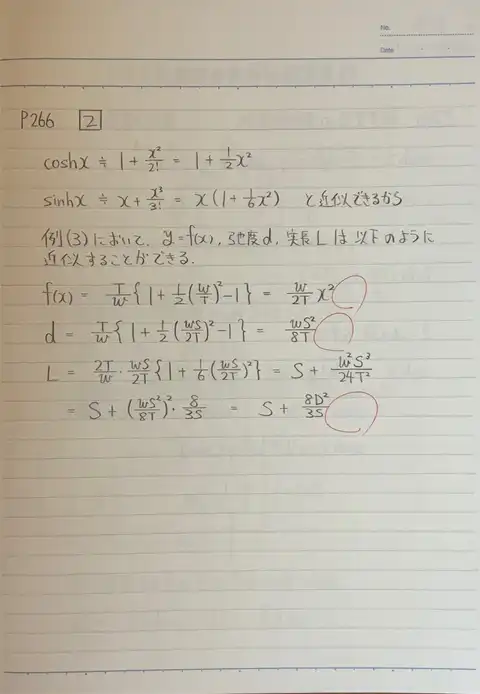 No.
Date
P266 [2]
coshx ≒ 1 + x²/2! = 1 + 1/2 x²
sinhx ≒ x + x³/3! = x(1 + 1/6 x²) と近似できるから
例(3)において、y=f(x), 弛度d, 実長Lは以下のように
近似することができる.
f(x) = T/W {1 + 1/2 (W/T)² - 1} = W/2T x²
d = T/W {1 + 1/2 (WS/2T)² - 1} = WS²/8T
L = 2T/W · WS/2T {1 + 1/6 (WS/2T)²} = S + W²S³/24T²
= S + (WS²/8T)² · 8/3S = S + 8D²/3S